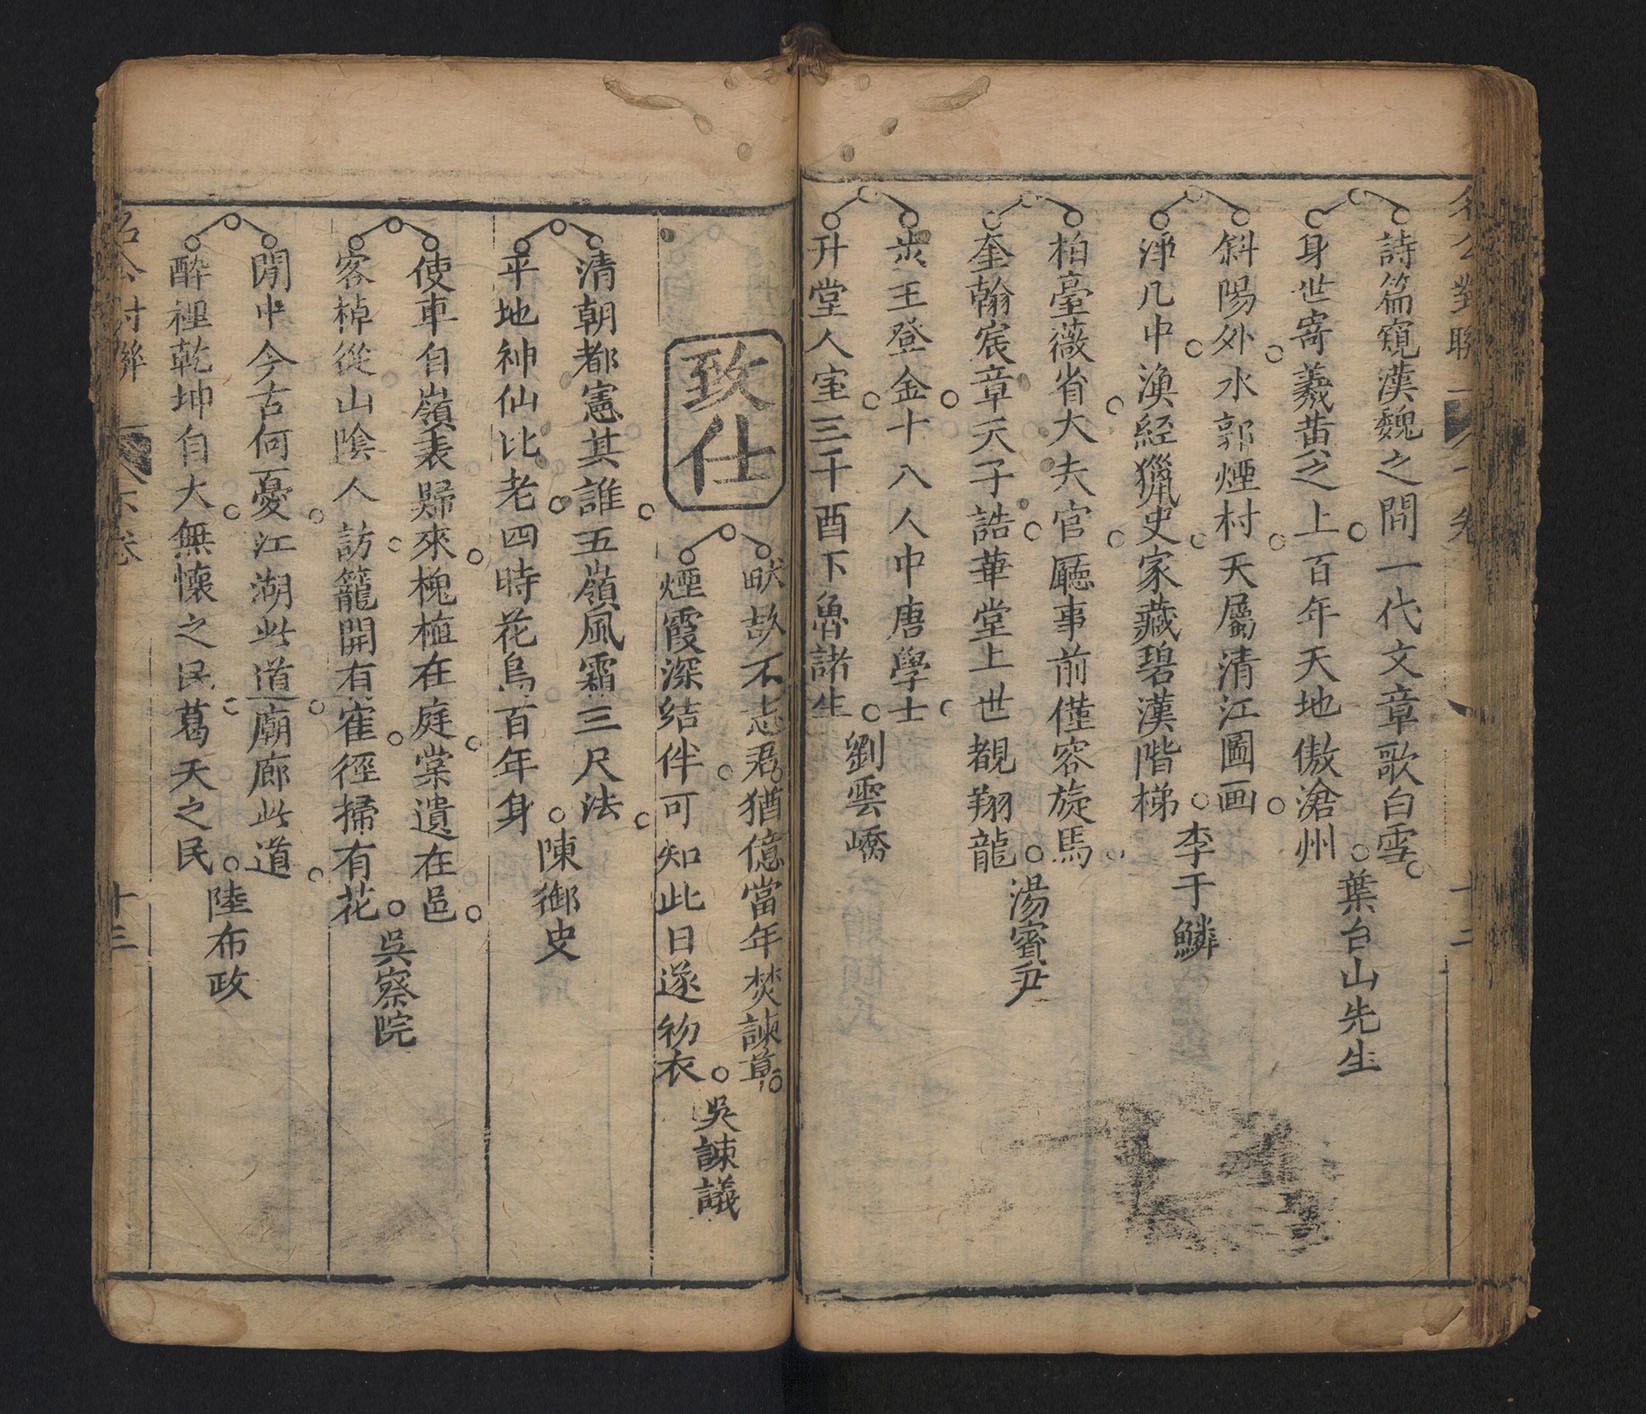 詩篇窺漢魏之間一代文章歌白雪
身世寄羲黃之上百年天地傲滄州
葉台山先生
斜陽外水郭煙村天屬清江圖画
淨几中漁經獵史家藏碧漢階梯
李于鱗
柏臺薇省大夫官廳事前僅容旋馬
奎翰宸章天子誥華堂上世覩翔龍
湯賓尹
王登金十八人中唐學士
升堂人室三千酉下魯諸生
劉雲嶠
致仕
畎畝不志君猶億當年焚諫章
煙霞深結伴可知此日遂初衣
吳諫議
清朝都憲其誰五嶺風霜三尺法
平地神仙比老四時花鳥百年身
陳御史
使車自嶺表歸來槐植在庭棠遺在邑
客棹從山陰人訪籠開有隺徑掃有花
吳察院
閒中今古何憂江湖此道廟廊此道
醉裡乾坤自大無懷之民葛天之民
陸布政
十三